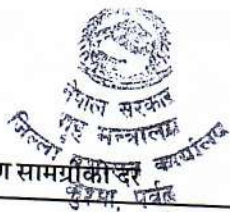 नेपाल सरकार
गृह मन्त्रालय
जिल्ला प्रशासन कार्यालय
ण सामग्रीको दर
कुश्मा, पर्वत